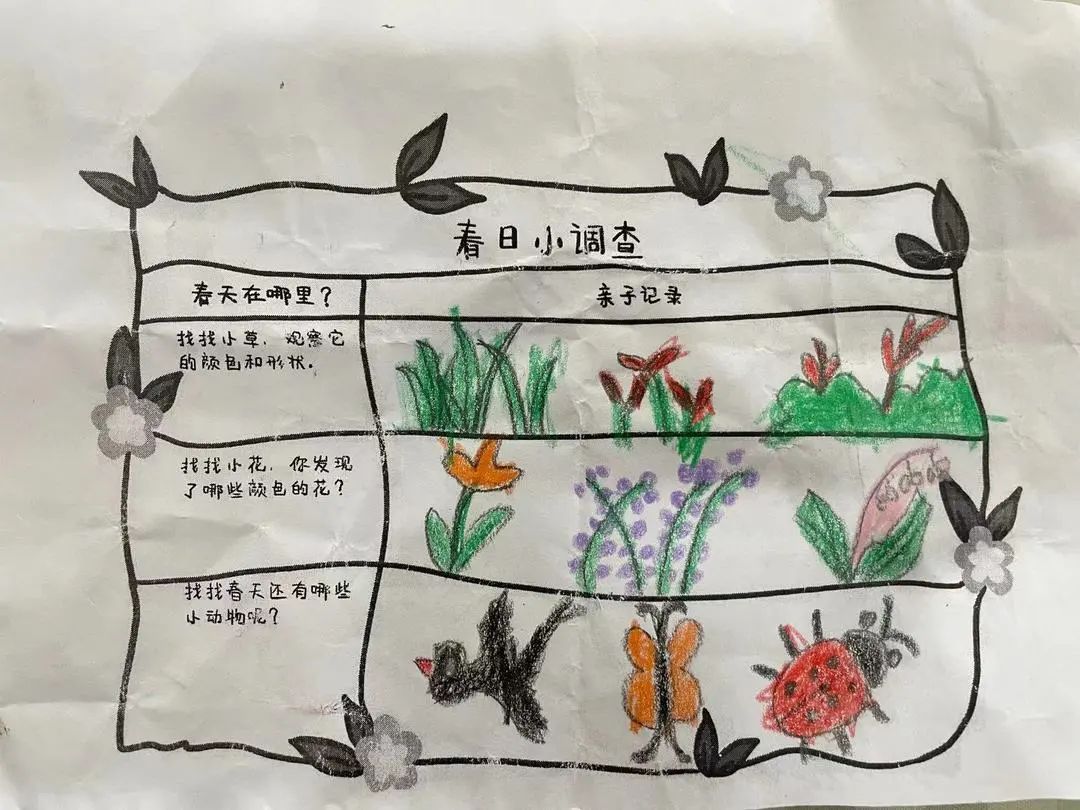 春日小调查
春天在哪里？
亲子记录
找找小草，观察它
的颜色和形状。
找找小花，你发现
了哪些颜色的花？
找找春天还有哪些
小动物呢？